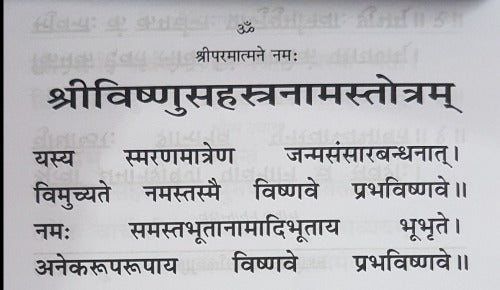 ॐ
श्रीपरमात्मने नमः
श्रीविष्णुसहस्त्रनामस्तोत्रम्
यस्य स्मरणमात्रेण जन्मसंसारबन्धनात्।
विमुच्यते नमस्तस्मै विष्णवे प्रभविष्णवे॥
नमः समस्तभूतानामादिभूताय भूभृते।
अनेकरूपरूपाय विष्णवे प्रभविष्णवे॥